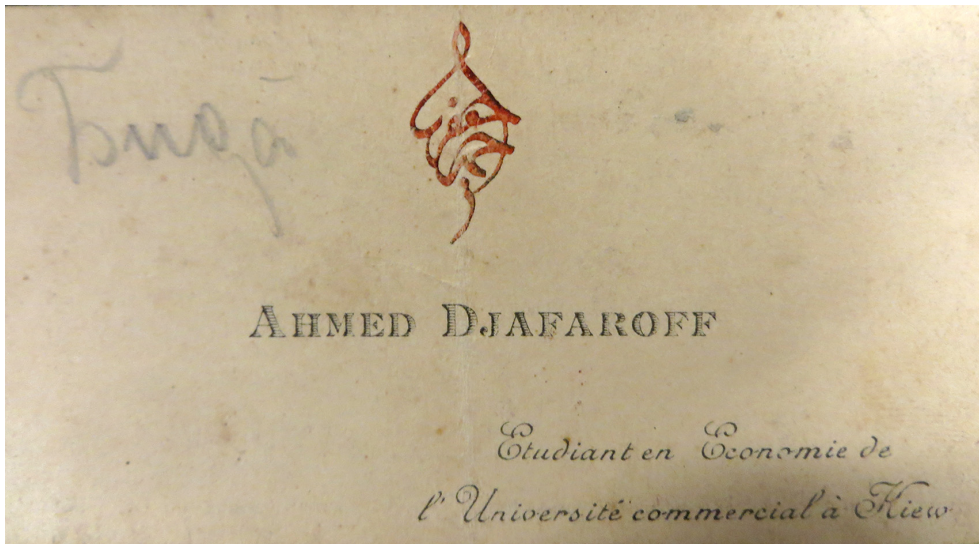 AHMED DJAFAROFF
Etudiant en Economie de
l'Université commercial à Kiew